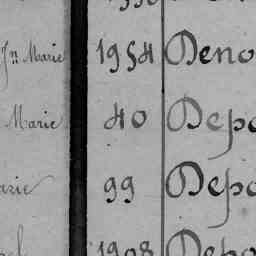 Jn Marie 1954 Deno
Marie 40 Depo
arie 99 Depo
1908 Depo